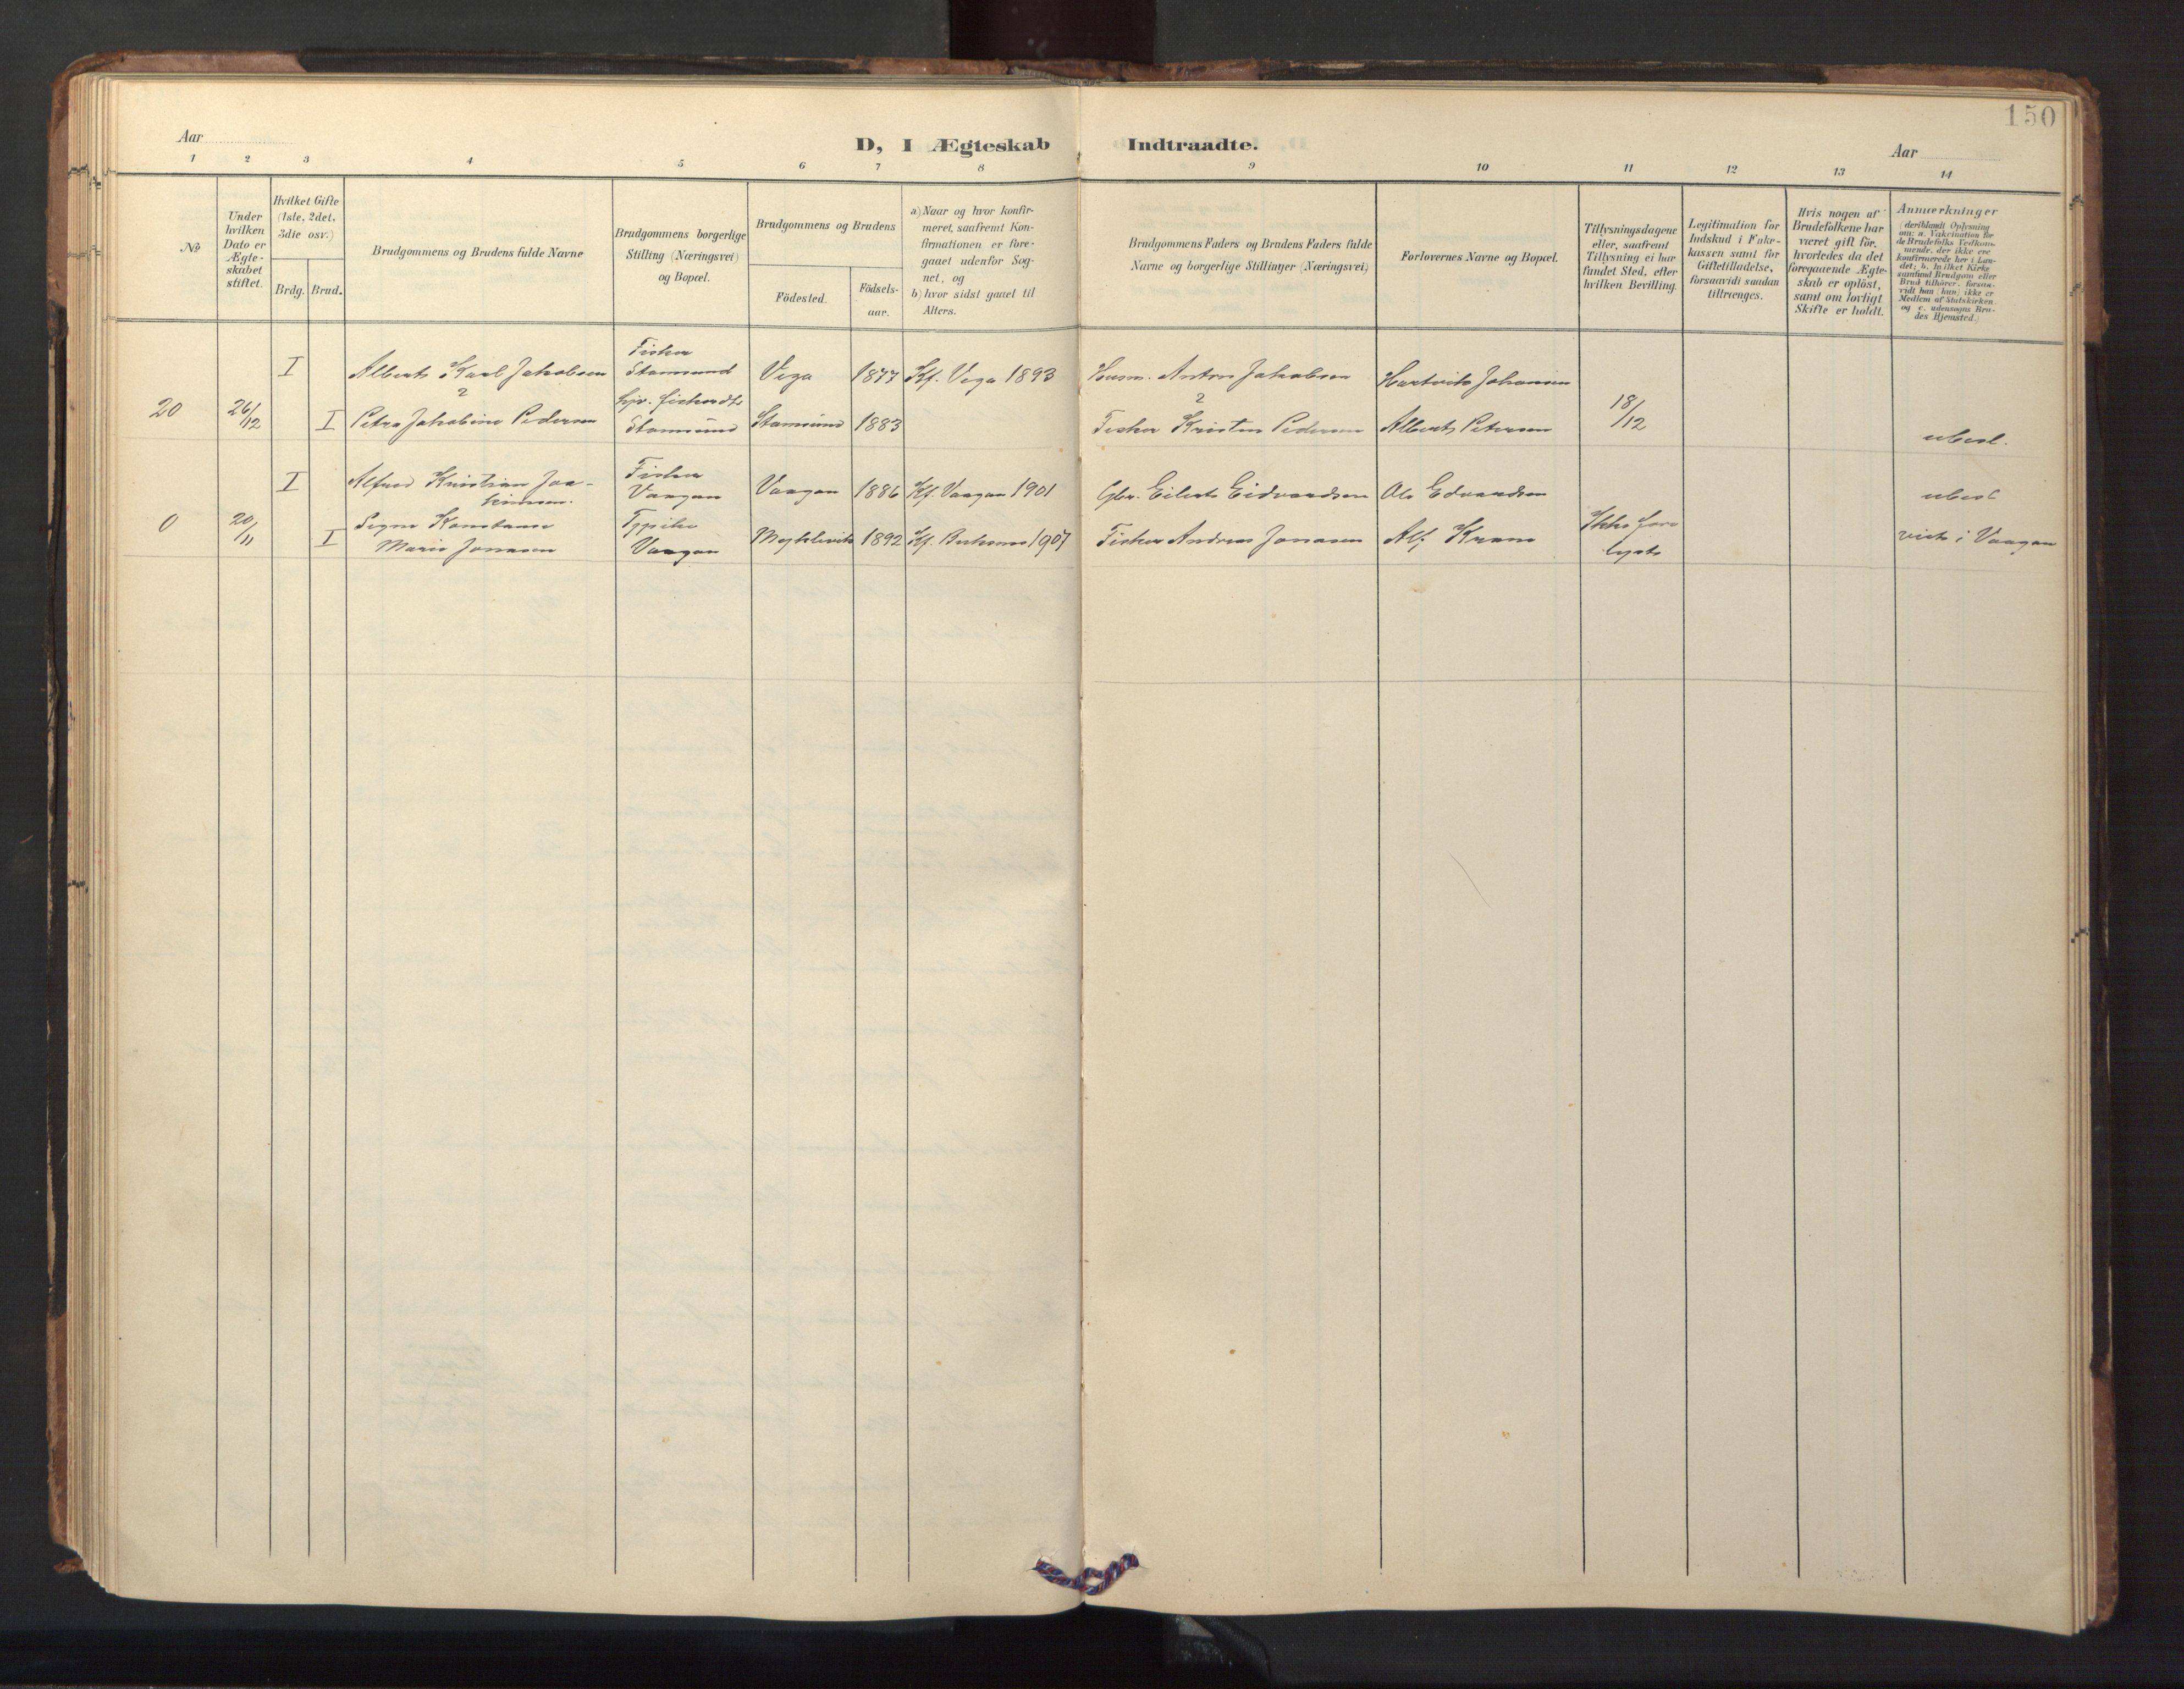 150
Aar
D, I Ægteskab Indtraadte.
Aar
1 2 3 4 5 6 7 8 9 10 11 12 13 14
No
Under
hvilken
Dato er
Ægte-
skabet
stiftet.
Hvilket Gifte
(1ste, 2det,
3die osv.)
Brdg. Brud.
Brudgommens og Brudens fulde Navne
Brudgommens borgerlige
Stilling (Næringsvei)
og Bopæl.
Brudgommens og Brudens
Födested.
Födsels-
aar.
a) Naar og hvor konfir-
meret, saafremt Kon-
firmationen er fore-
gaaet udenfor Sog-
net, og
b) hvor sidst gaaet til
Alters.
Brudgommens Faders og Brudens Faders fulde
Navne og borgerlige Stillinger (Næringsvei)
Forlovernes Navne og Bopæl.
Tillysningsdagene
eller, saafremt
Tillysning ei har
fundet Sted, efter
hvilken Bevilling.
Legitimation for
Indskud i Fakr-
kassen samt for
Giftetilladelse,
forsaavidt saadan
tiltrænges.
Hvis nogen af
Brudefolkene har
været gift för,
hvorledes da det
foregaaende Ægte-
skab er oplöst,
samt om lovligt
Skifte er holdt.
Anmærkninger
(deriblandt Oplysning
om: a. Vakcination for
de Brudefolks Vedkom-
mende, der ikke ere
konfirmerede her i Lan-
det; b. hvilket Kirke
samfund Brudgom eller
Brud tilhörer, forsaa-
vidt han (hun) ikke er
Medlem af Statskirken.
og c. udensogns Bru-
des Hjemsted.)
I Albert Karl Jakobsen Fisker Stamsund Vega 1877 Kf. Vega 1893 Husm. Anton Jakobsen Hartvik Johansen
20 26/12 I Petra Jakobine Pedersen Stamsund Stamsund 1883 Fisker Kristen Pedersen Albert Petersen 18/12 ubesl.
I Alfred Kristian Joa-
kimsen. Fisker Vaagan Vaagan 1886 Kf. Vaagan 1901 Gbr. Eilert Edvardsen Ole Edvardsen ubesl
0 20/11 I Signe Konstanse
Marie Jonasen Vaagan 1892 Kf. Buksnes 1907 Fisker Andreas Jonasen Alf Kram Ikke for-
lyst viet i Vaagan